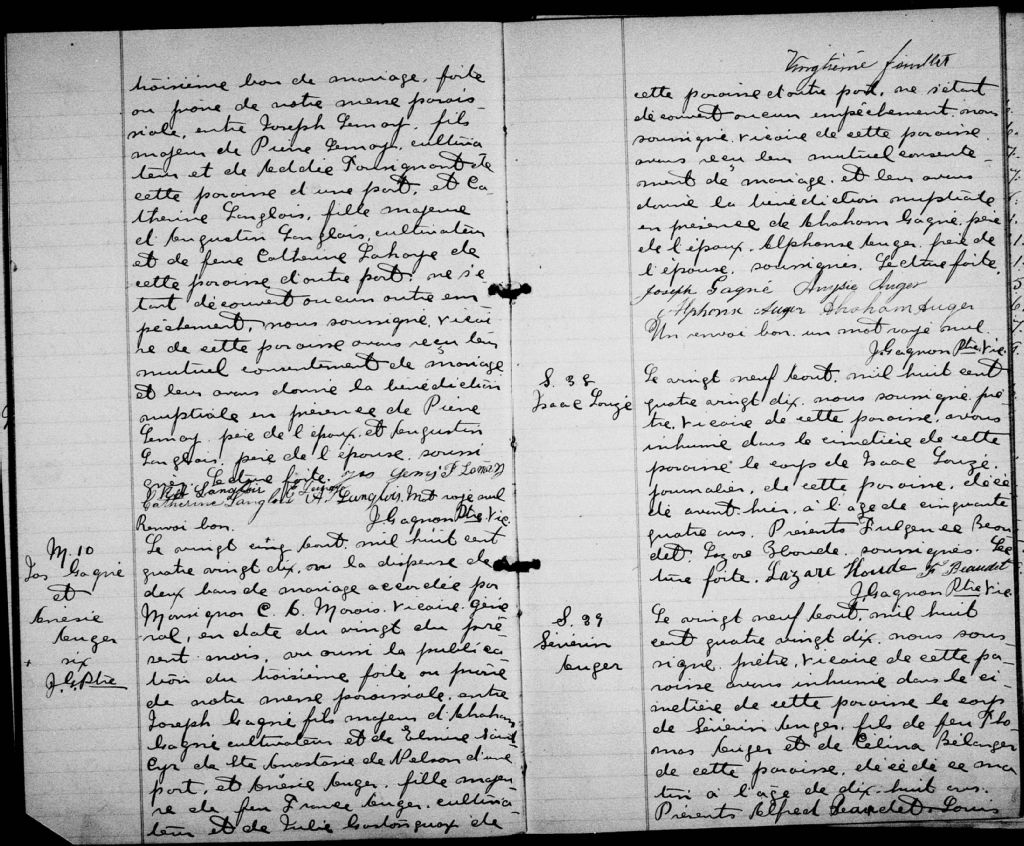 troisième ban de mariage, faite
au prône de notre messe parois-
siale, entre Joseph Lemay, fils
majeur de Pierre Lemay, cultiva-
teur et de Addie de
cette paroisse d'une part, et Ca-
therine Langlois, fille majeure
d'Augustin Langlois, cultivateur
et de feue Catherine Lahaye de
cette paroisse d'autre part; ne s'é-
tant découvert aucun autre em-
pêchement, nous soussigné, vicai-
re de cette paroisse avons reçu leur
mutuel consentement de mariage
et leur avons donné la bénédiction
nuptiale en présence de Pierre
Lemay, père de l'époux, et Augustin
Langlois, père de l'épouse, soussi-
gnés. Lecture faite.
Langlois
Catherine Langlois A. Langlois. Mot rayé nul
Renvoi bon. J. Gagnon Ptre Vic.
M. 10
Jos Gagné
et
Anésie
Auger
six
J. G. Ptre
Le vingt cinq Août, mil huit cent
quatre vingt dix, vu la dispense de
deux bans de mariage accordée par
Monsignor C. A. Marois, vicaire géné-
ral, en date du vingt du pré-
sent mois, vu aussi la publica-
tion du troisième faite au prône
de notre messe paroissiale, entre
Joseph Gagné fils majeur d'Abraham
Gagné cultivateur et de Elmire Saint
Cyr de Ste Anastasie de Nelson d'une
part, et Anésie Auger, fille majeu-
re de feu France Auger, cultiva-
teur et de Julie Gastonguay de
Vingtième feuillet
cette paroisse d'autre part, ne s'étant
découvert aucun empêchement, nous
soussigné, vicaire de cette paroisse
avons reçu leur mutuel consente-
ment de mariage, et leur avons
donné la bénédiction nuptiale
en présence de Abraham Gagné, père
de l'époux, Alphonse Auger, frère de
l'épouse, soussignés. Lecture faite.
Joseph Gagné Auger
Alphonse Auger Abraham Auger
Un renvoi bon. un mot rayé nul.
J. Gagnon Ptre Vic.
S. 38
Isaac Lauzé
Le vingt neuf Août, mil huit cent
quatre vingt dix, nous soussigné, prê-
tre, vicaire de cette paroisse, avons
inhumé dans le cimetière de cette
paroisse le corps de Isaac Lauzé,
journalier, de cette paroisse, décé-
dé avant-hier, à l'âge de cinquante
quatre ans. Présents Fulgence Beau-
det, Lazare Houde, soussignés. Lec-
ture faite. Lazare Houde Fs Beaudet
J. Gagnon Ptre Vic.
S. 39
Sévérin
Auger
Le vingt neuf Août, mil huit
cent quatre vingt dix, nous sous-
signé, prêtre, vicaire de cette pa-
roisse avons inhumé dans le ci-
metière de cette paroisse le corps
de Sévérin Auger, fils de feu Tho-
mas Auger et de Célina Bélanger
de cette paroisse, décédé ce ma-
tin à l'âge de dix-huit ans.
Présents Alfred Beaudet, Louis